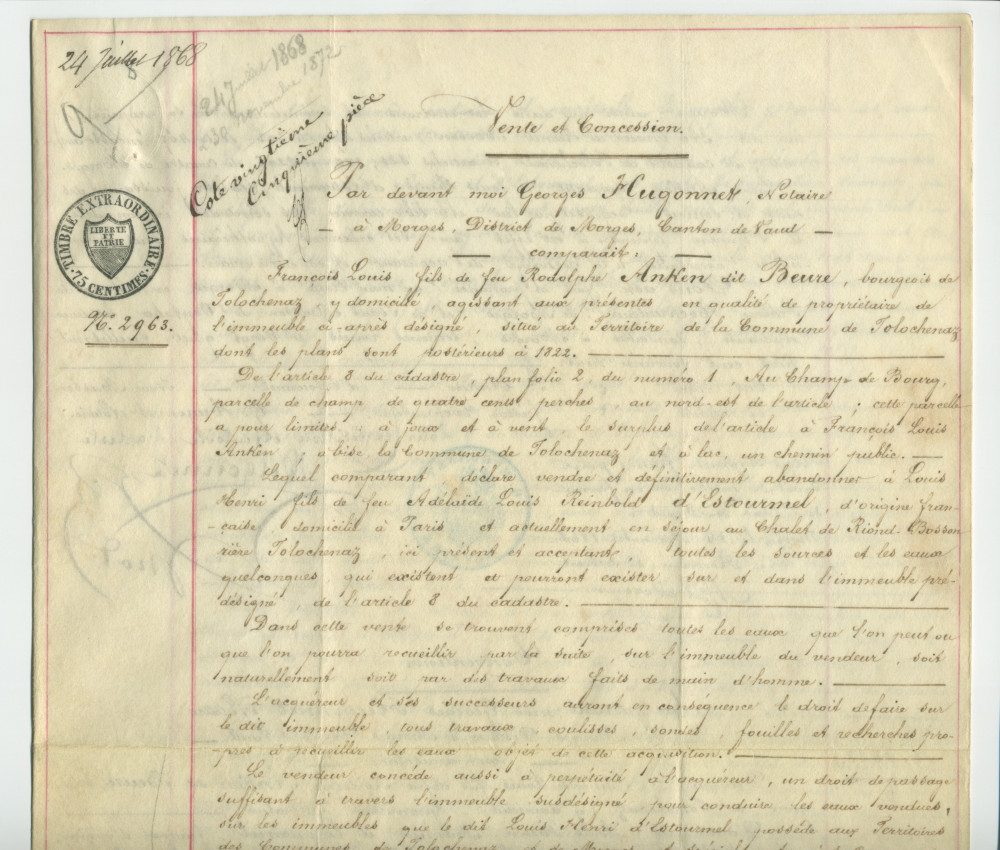 24 Juillet 1868
24 Juillet 1868
novembre 1872
Cote vingtième
Cinquième pièce
Vente et Concession.
Par devant moi Georges Hugonnet, Notaire
— à Morges, District de Morges, Canton de Vaud —
— comparait : —
François Louis fils de feu Rodolphe Anken dit Beure, bourgeois de
Tolochenaz, y domicilié, agissant aux présentes en qualité de propriétaire de
l'immeuble ci-après désigné, situé au Territoire de la Commune de Tolochenaz
dont les plans sont postérieurs à 1822. —
De l'article 8 du cadastre, plan folio 2, du numéro 1, Au Champ de Bourg,
parcelle de champ de quatre cents perches, au nord-est de l'article ; cette parcelle
a pour limites : à joux et à vent, le surplus de l'article à François Louis
Anken, à bise, la Commune de Tolochenaz et à lac, un chemin public. —
Lequel comparant déclare vendre et définitivement abandonner à Louis
Henri fils de feu Adélaïde Louis Reinbold d'Estourmel, d'origine fran-
-çaise, domicilié à Paris et actuellement en séjour au Chalet de Riond-Bosson
rière Tolochenaz, ici présent et acceptant, toutes les sources et les eaux
quelconques, qui existent et pourront exister sur et dans l'immeuble pré-
-désigné, de l'article 8 du cadastre. —
Dans cette vente se trouvent comprises toutes les eaux que l'on peut ou
que l'on pourra recueillir par la suite, sur l'immeuble du vendeur, soit
naturellement soit par des travaux faits de main d'homme. —
L'acquéreur et ses successeurs auront en conséquence le droit de faire sur
le dit immeuble, tous travaux, coulisses, sondes, fouilles et recherches pro-
-pres à recueillir les eaux objet de cette acquisition. —
Le vendeur concède aussi à perpétuité à l'acquéreur, un droit de passage
suffisant à travers l'immeuble susdésigné pour conduire les eaux vendues,
sur les immeubles que le dit Louis Henri d'Estourmel possède aux Territoires
des Communes de Tolochenaz et de Morges
TIMBRE EXTRAORDINAIRE
LIBERTE
ET
PATRIE
75 CENTIMES
N°. 2963.